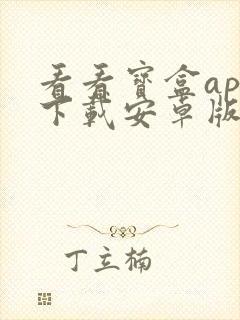 看看宝盒ap
下载安卓版
丁立楠